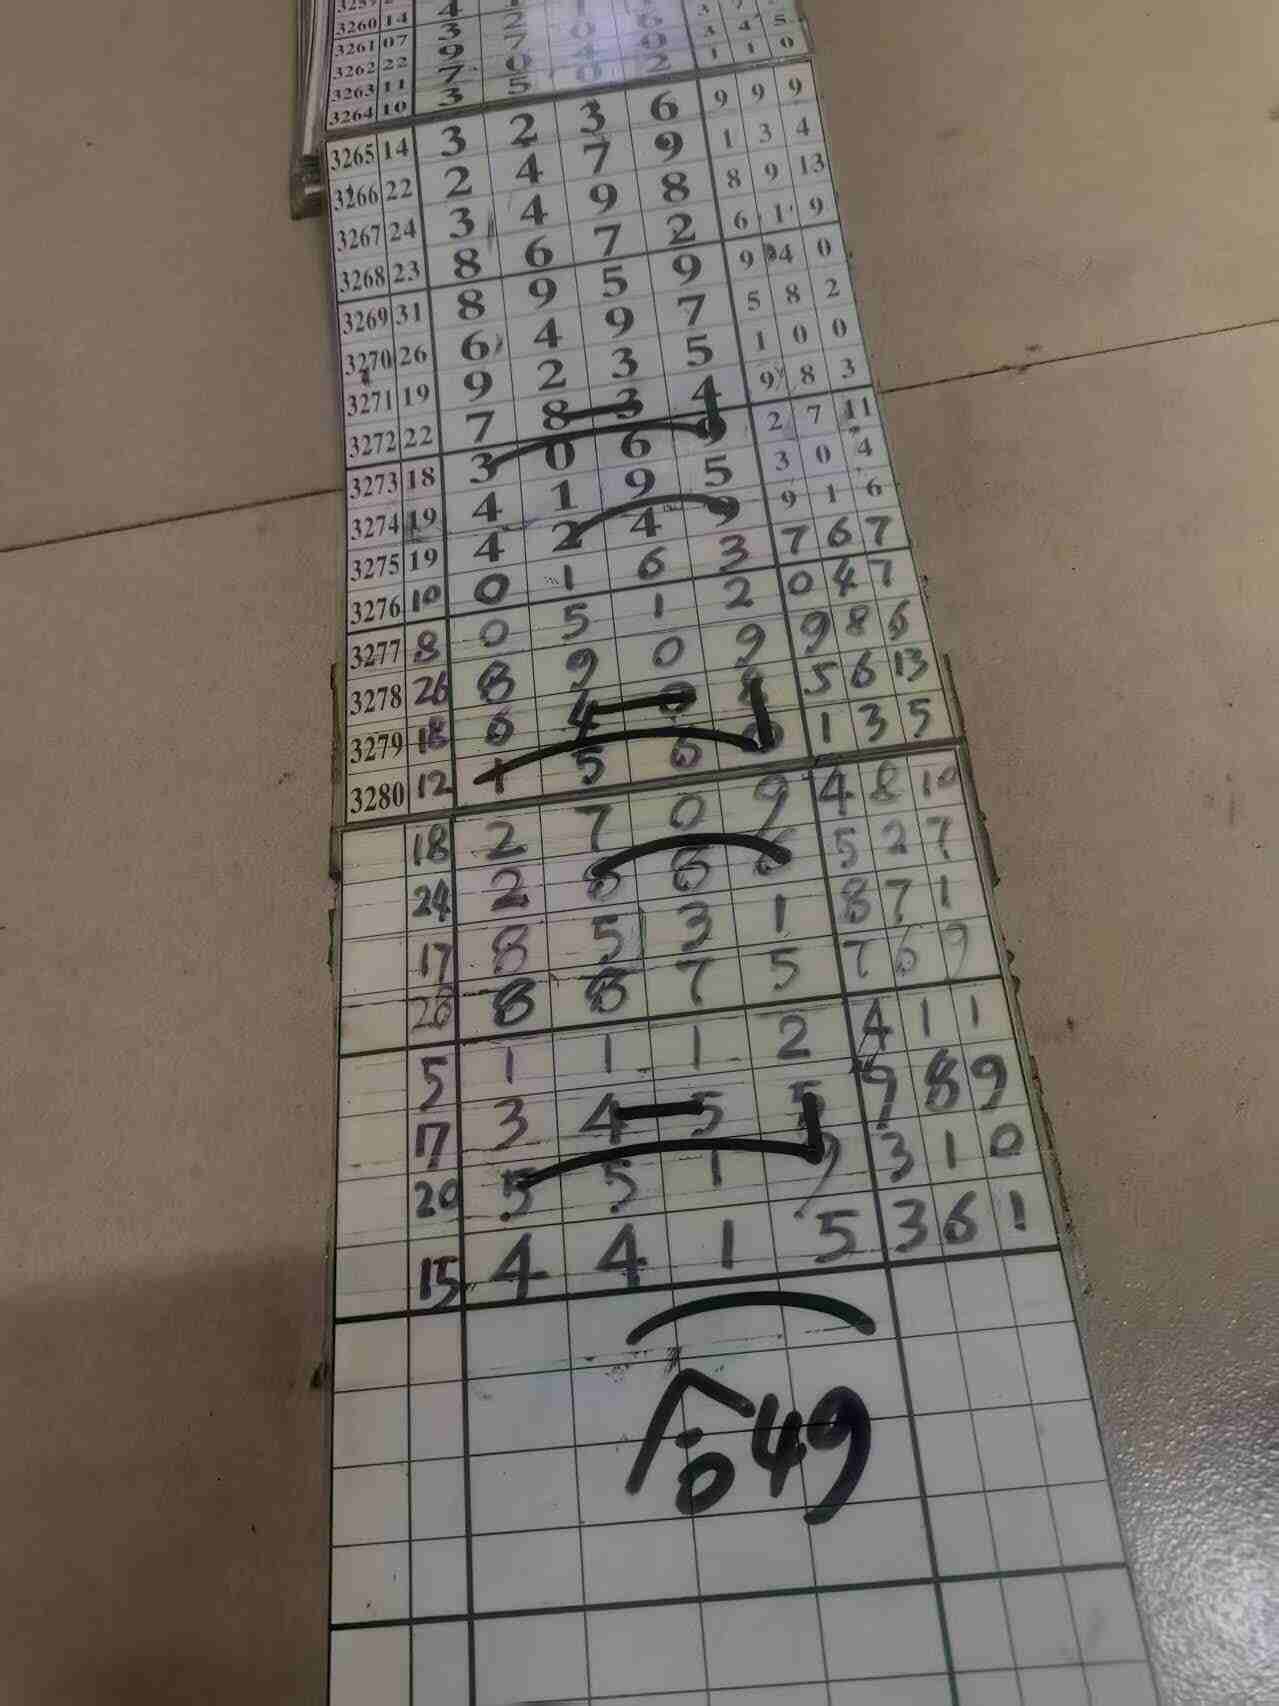 3260 14 4
3261 07 3 2
3262 22 9 7 0 6 3 7
3263 11 7 0 4 0 3 4 5
3264 10 3 5 0 2 1 1 0
3265 14 3 2 3 6 9 9 9
3266 22 2 4 7 9 1 3 4
3267 24 3 4 9 8 8 9 13
3268 23 8 6 7 2 6 1 9
3269 31 8 9 5 9 9 4 0
3270 26 6 4 9 7 5 8 2
3271 19 9 2 3 5 1 0 0
3272 22 7 8 3 4 9 8 3
3273 18 3 0 6 9 2 7 11
3274 19 4 1 9 5 3 0 4
3275 19 4 2 4 9 9 1 6
3276 10 0 1 6 3 7 6 7
3277 8 0 5 1 2 0 4 7
3278 26 8 9 0 9 9 8 6
3279 18 6 4 0 8 5 6 13
3280 12 1 5 6 0 1 3 5
18 2 7 0 9 4 8 10
24 2 8 8 6 5 2 7
17 8 5 3 1 8 7 1
28 8 8 7 5 7 6 9
5 1 1 1 2 4 1 1
17 3 4 5 5 9 8 9
20 5 5 1 9 3 1 0
15 4 4 1 5 3 6 1
合49